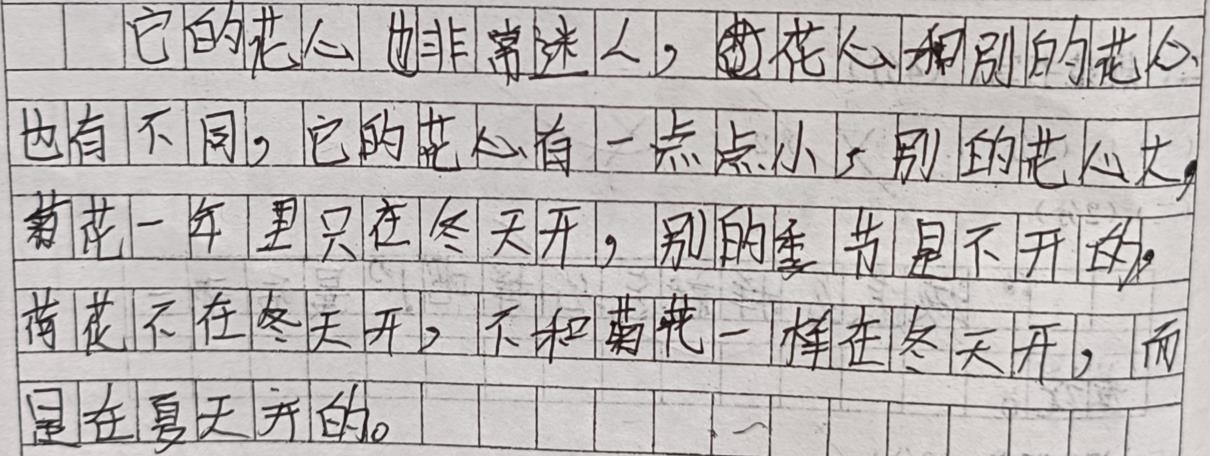 它的花心也非常迷人，花心和别的花心
也有不同，它的花心有一点点小，别的花心大，
菊花一年里只在冬天开，别的季节是不开的。
荷花不在冬天开，不和菊花一样在冬天开，而
是在夏天开的。